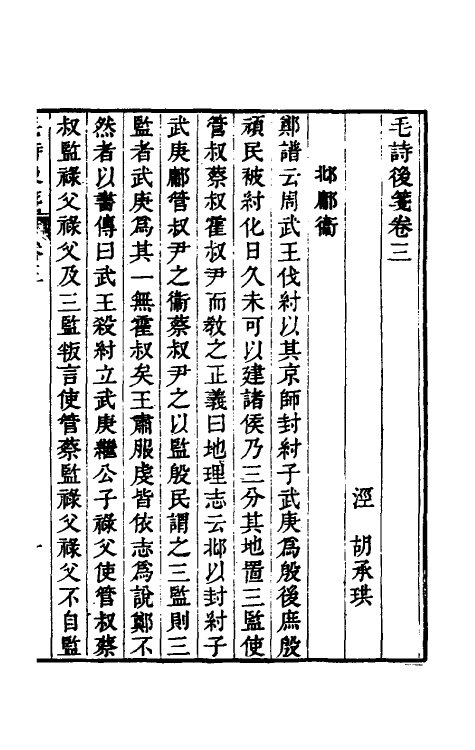 毛詩後箋卷三
涇　胡承珙
邶鄘衞
鄭譜云周武王伐紂以其京師封紂子武庚爲殷後庶殷
頑民被紂化日久未可以建諸侯乃三分其地置三監使
管叔蔡叔霍叔尹而敎之正義曰地理志云邶以封紂子
武庚鄘管叔尹之衞蔡叔尹之以監殷民謂之三監則三
監者武庚爲其一無霍叔矣王肅服虔皆依志爲說鄭不
然者以書傳曰武王殺紂立武庚繼公子祿父使管叔蔡
叔監祿父祿父及三監叛言使管蔡監祿父祿父不自監